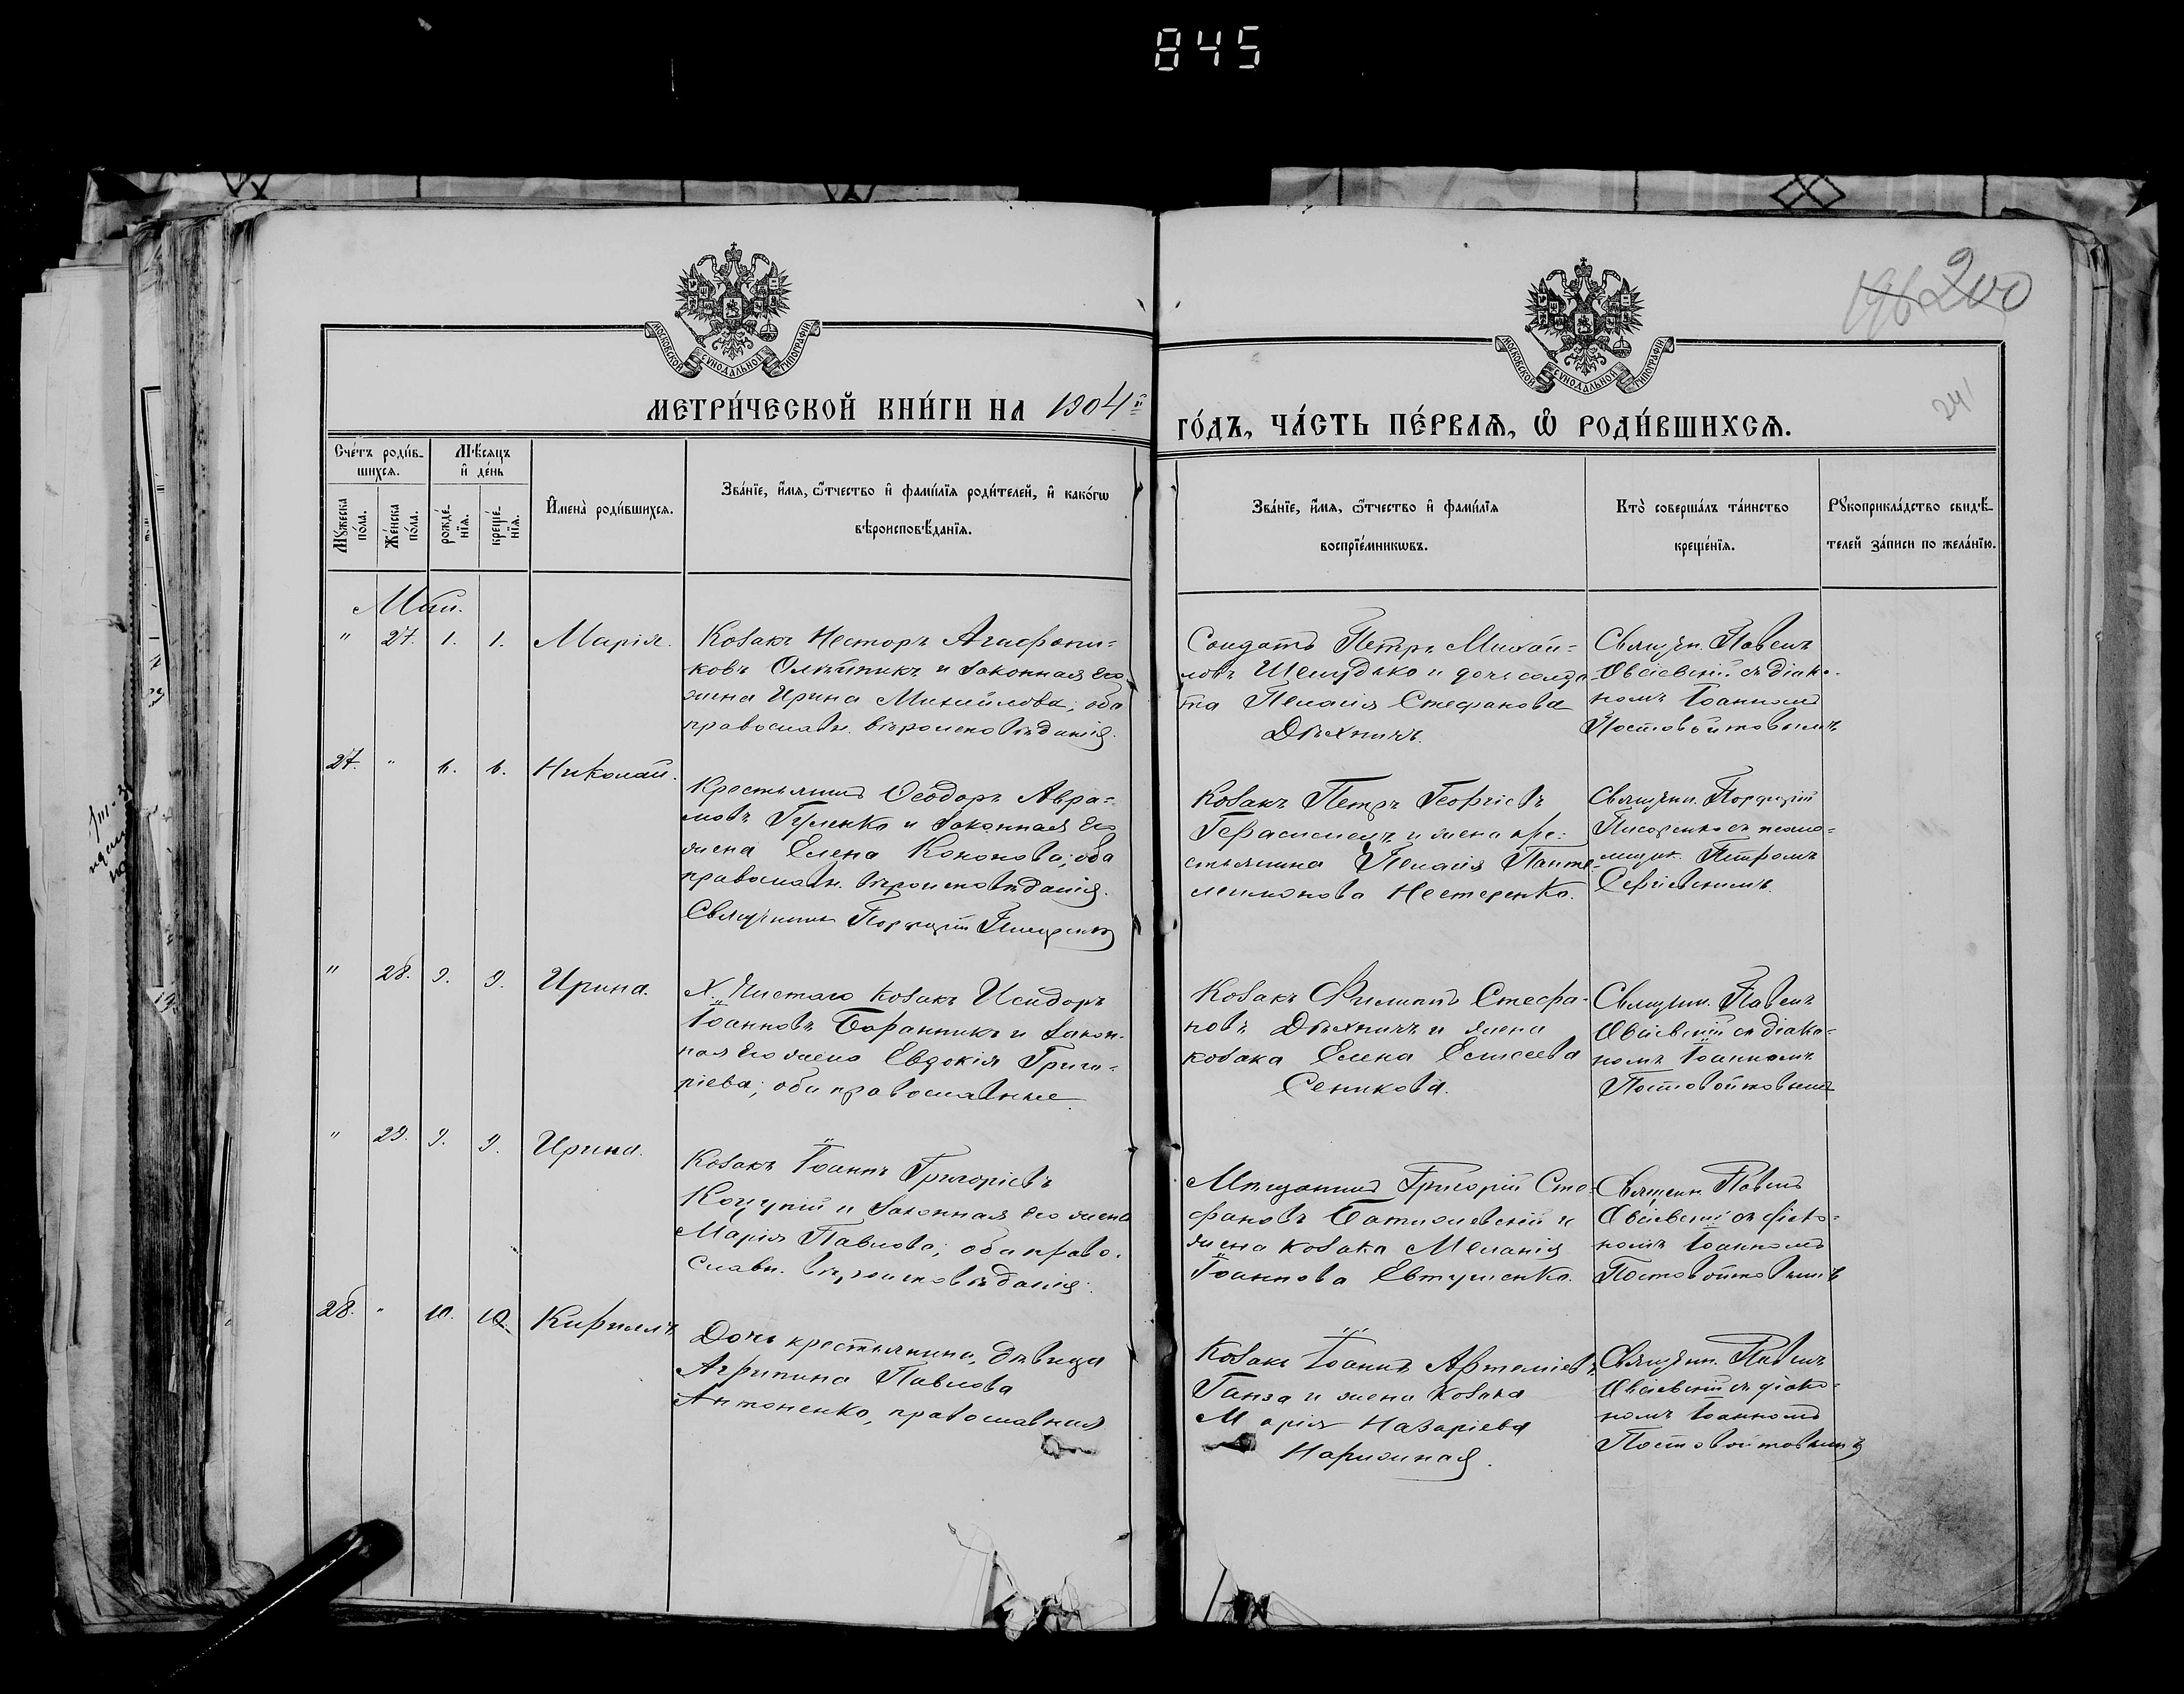 845
196 200
241
МОСКОВСКОЙ СУНОДАЛЬНОЙ ТИПОГРАФІИ
МОСКОВСКОЙ СУНОДАЛЬНОЙ ТИПОГРАФІИ
МЕТРИ́ЧЕСКОЙ КНИ́ГИ НА 1904й
ГО́ДЪ, ЧА́СТЬ ПЕ́РВАѦ, Ѡ҆ РОДИ́ВШИХСѦ.
Сче́тъ роди́в-
шихсѧ.
Мѣ́сѧцъ
и҆ де́нь
Мꙋ́жеска
по́ла.
Же́нска
по́ла.
рожде́-
нїѧ.
креще́-
нїѧ.
И҆мена̀ роди́вшихсѧ.
Зва́нїе, и҆́мѧ, ѻ҆́тчество и҆ фами́лїѧ роди́телей, и҆ како́гѡ
вѣроисповѣ́данїѧ.
Зва́нїе, и҆́мѧ, ѻ҆́тчество и҆ фами́лїѧ
воспрїе́мникѡвъ.
Кто̀ соверша́лъ та́инство
креще́нїѧ.
Рꙋкоприкла́дство свидѣ́-
телей за́писи по жела́нїю.
Май.
" 27. 1. 1. Марія.
Козакъ Несторъ Агафони-
ковъ Олѣйникъ и законная его
жена Ирина Михайлова; оба
православн. вѣроисповѣданія.
Солдатъ Петръ Михай-
ловъ Шелудько и дочь солда-
та Пелагія Стефанова
Дѣхничъ.
Священ. Павелъ
Овсіевскій съ діако-
номъ Іоанномъ
Постовойтовымъ
27. " 6. 6. Николай.
Крестьянинъ Ѳеодоръ Авра-
мовъ Гуленко и законная его
жена Елена Кононова; оба
православн. вѣроисповѣданія.
Священникъ Порфирій
Козакъ Петръ Георгіевъ
Герасимецъ и жена кре-
стьянина Пелагія Панте-
леимонова Нестеренко.
Священн. Порфирій
Писаренко съ псалом-
щик. Петромъ
Сергіевскимъ.
" 28. 9. 9. Ирина.
Х. Чистаго козакъ Исидоръ
Іоанновъ Баранникъ и закон-
ная его жена Евдокія Григо-
ріева; оба православные
Козакъ Филиппъ Стефа-
новъ Дѣхничъ и жена
козака Елена Елисеева
Сеникова.
Священн. Павелъ
Овсіевскій съ діако-
номъ Іоанномъ
Постовойтовымъ
" 29. 9. 9. Ирина.
Козакъ Іоаннъ Григоріевъ
Коцупій и законная его жена
Марія Павлова; оба право-
славн. вѣроисповѣданія.
Мѣщанинъ Григорій Сте-
фановъ и
жена козака Меланія
Іоаннова Евтушенко.
Священн. Павелъ
Овсіевскій съ діако-
номъ Іоанномъ
Постовойтовымъ
28. " 10. 10. Кириллъ
Дочь крестьянина, дѣвица
Агрипина Павлова
Антоненко, православная
Козакъ Іоаннъ Артеміевъ
Ганза и жена козака
Марія Назаріева
Нарижная.
Священн. Павелъ
Овсіевскій съ діако-
номъ Іоанномъ
Постовойтовымъ